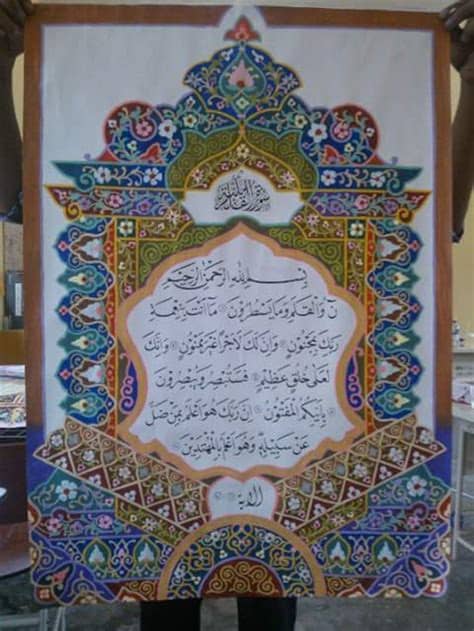 سورة
بِسْمِ اللهِ الرَّحْمٰنِ الرَّحِيْمِ
نۤ وَالْقَلَمِ وَمَا يَسْطُرُوْنَ ۝ مَا أَنْتَ بِنِعْمَةِ
رَبِّكَ بِمَجْنُوْنٍ ۝ وَإِنَّ لَكَ لَأَجْرًا غَيْرَ مَمْنُوْنٍ ۝ وَإِنَّكَ
لَعَلَى خُلُقٍ عَظِيْمٍ ۝ فَسَتُبْصِرُ وَيُبْصِرُوْنَ
بِأَييِّكُمُ الْمَفْتُوْنُ ۝ إِنَّ رَبَّكَ هُوَ أَعْلَمُ بِمَنْ ضَلَّ
عَنْ سَبِيْلِهِ وَهُوَ أَعْلَمُ بِالْمُهْتَدِيْنَ ۝
الاية